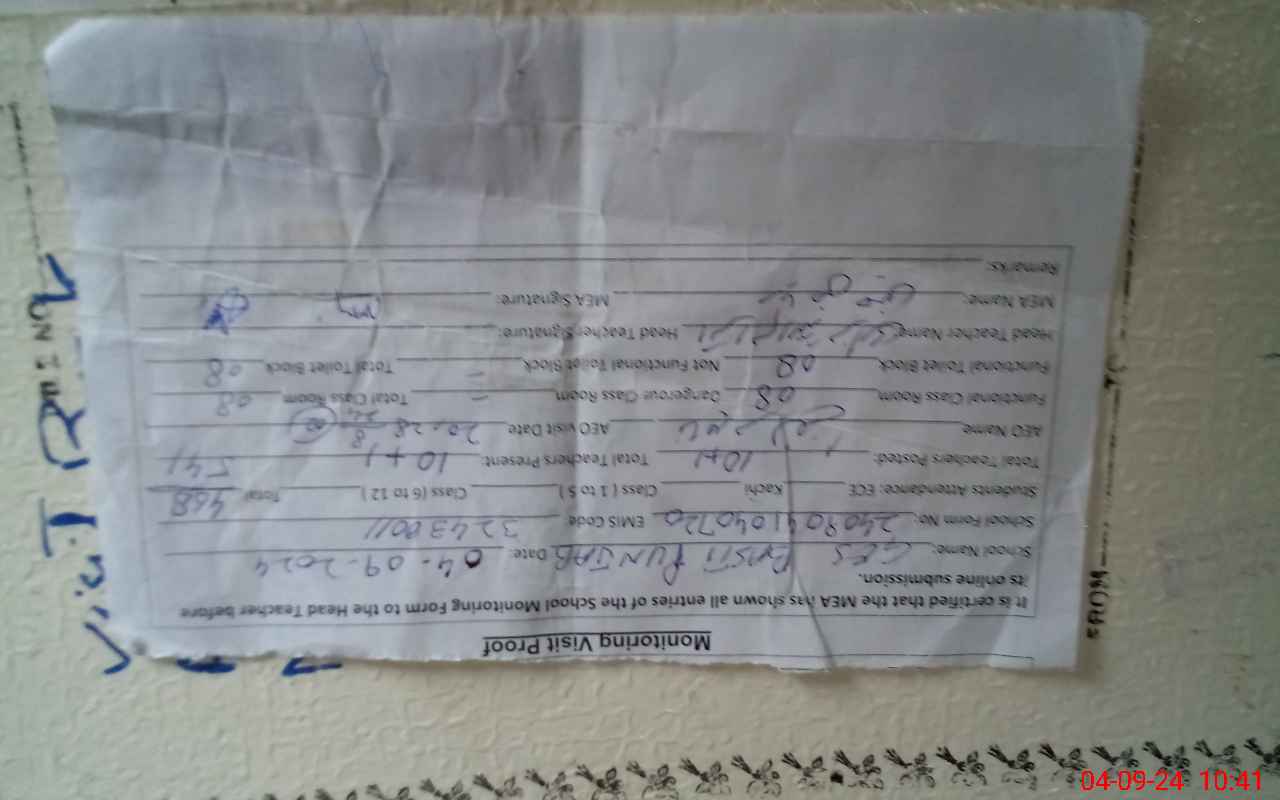 Monitoring Visit Proof
It is certified that the MEA has shown all entries of the School Monitoring Form to the Head Teacher before
its online submission.
School Name: GES BASTI PUNJAB Date: 04-09-2024
School Form No: 2409041040720 EMIS Code: 32430011
Students Attendance: ECE Kachi Class ( 1 to 5 ) Class (6 to 12 ) Total 468
541
Total Teachers Posted: 10+1 Total Teachers Present: 10+1
AEO Name AEO visit Date 20, 28
Functional Class Room 08 Dangerous Class Room - Total Class Room 08
Functional Toilet Block 08 Not Functional Toilet Block - Total Toilet Block 08
Head Teacher Name: Head Teacher Signature:
MEA Name: MEA Signature:
Remarks:
FROM
04-09-24 10:41